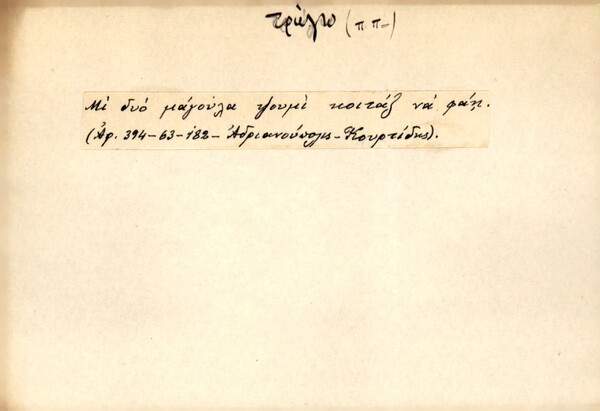 τρώγω (π.π.)
Μὶ δυό μάγουλα ψουμὶ κοιτάζ νά φάῃ.
(Ἀρ. 394-63-182- Ἀδριανούπολις - Κουρτίδης).